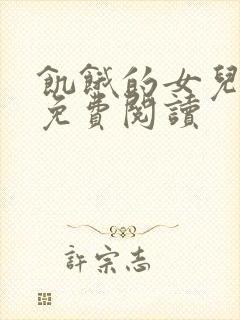 飢餓的女兒
免費閱讀
許宗志